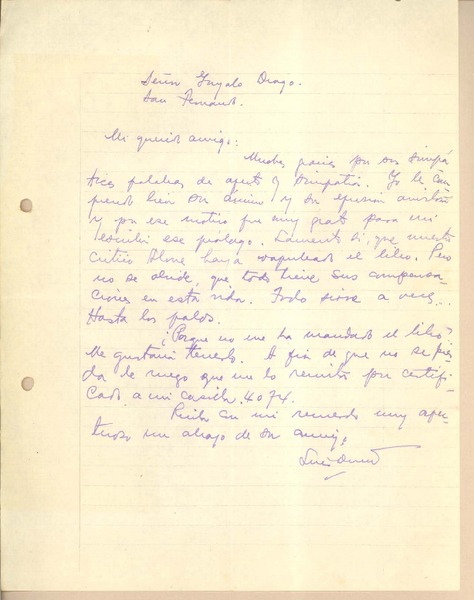 Señor Gonzalo Drago.
San Fernando.
Mi querido amigo:
Muchas gracias por sus simpá
ticas palabras de afecto y simpatía. Yo le com
prendo bien su ánimo y su efusión amistosa
y por ese motivo fue muy grato para mí
escribir ese prólogo. Lamento sí, que nuestro
crítico Alone haya vapuleado el libro. Pero
no se olvide, que todo tiene sus compensa
ciones en esta vida. Todo sirve a veces...
Hasta los palos.
¿Porque no me ha mandado el libro?
Me gustaría tenerlo. A fin de que no se pier
da le ruego que me lo remita por certifi
cado, a mi casilla 4074.
Reciba con mi recuerdo muy afec
tuoso un abrazo de su amigo,
Luis Durand